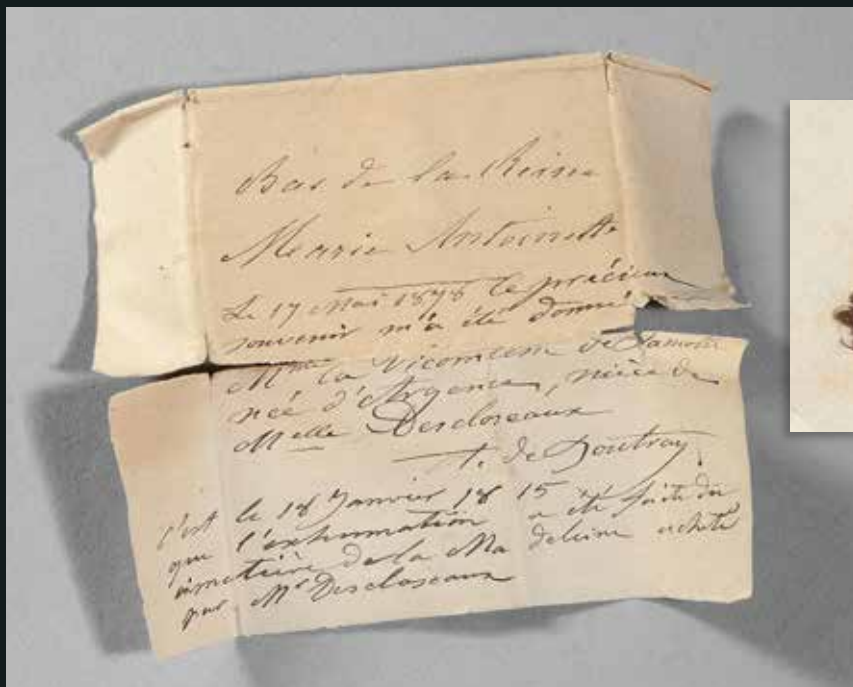 Bas de la Reine
Marie Antoinette
Le 17 Mai 1878 le précieux
souvenir m'a été donné
Mme la Vicomtesse de
née d'Argence, nièce de
Melle Descloseaux
de
c'est le 18 Janvier 1815
que l'exhumation a été faite du
cimetière de la Madeleine acheté
par Mr Descloseaux